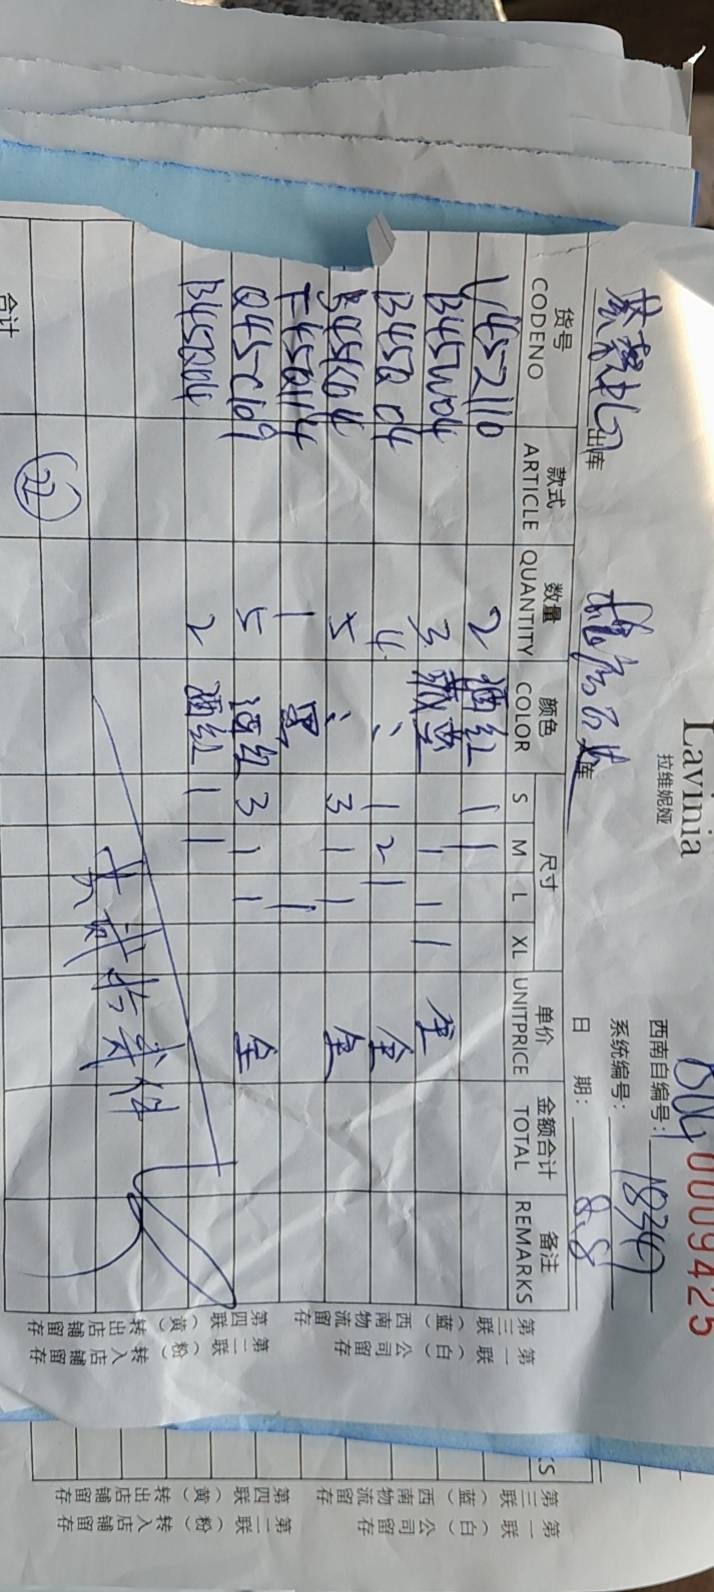 Lavinia
拉维妮娅
0009425
西南自编号: 18347
系统编号:
日 期: 8.8
出库 库
货号 款式 数量 颜色 尺寸 单价 金额合计 备注
CODENO ARTICLE QUANTITY COLOR S M L XL UNITPRICE TOTAL REMARKS
V452110 2 酒红 1 1
B45W04 3 藏蓝 1 1 1 全
B45Q04 4 、、 1 2 1 全
B45K04 5 、、 3 1 1 全
F45Q114 1 黑 1
Q45C109 5 酒红 3 1 1 全
B45Q04 2 酒红 1 1
共贰拾贰件
22
合计
第一联(白)公司留存
第二联(粉)转入店铺留存
第三联(蓝)西南物流留存
第四联(黄)转出店铺留存
KS
第一联(白)公司留存
第二联(粉)转入店铺留存
第三联(蓝)西南物流留存
第四联(黄)转出店铺留存